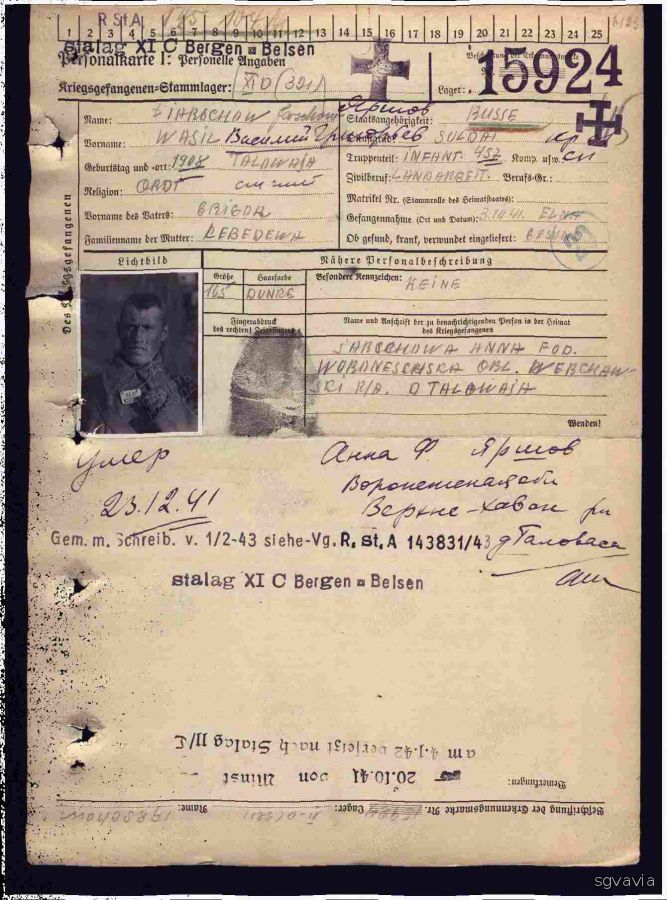 R St.A
1 2 3 4 5 6 7 8 9 10 11 12 13 14 15 16 17 18 19 20 21 22 23 24 25
Stalag XI C Bergen - Belsen
Personalkarte I: Personelle Angaben
Kriegsgefangenen-Stammlager: XI D (321)
Lager:
15924
Des Kriegsgefangenen
Name: Яршов
Vorname: WASIL Василий Григорьев
Geburtstag und -ort: 1908 TALOWAJA
Religion: ORDT
Vorname des Vaters: GRIGOR
Familienname der Mutter: LEBEDEWA
Staatsangehörigkeit: RUSSE
SOLDAT
Truppenteil: INFANT. 457 Komp. usw.:
Zivilberuf: LANDARBEIT. Berufs-Gr.:
Matrikel Nr. (Stammrolle des Heimatstaates):
Gefangennahme (Ort und Datum): 3.10.41. ELNA
Ob gesund, krank, verwundet eingeliefert: GESUND
Lichtbild
Nähere Personalbeschreibung
Größe Haarfarbe
165 DUNKE
Besondere Kennzeichen:
KEINE
Fingerabdruck
des rechten Zeigefingers
Name und Anschrift der zu benachrichtigenden Person in der Heimat
des Kriegsgefangenen
JARSCHOWA ANNA FOD.
WORONESCHSKA OBL. WERCHAW-
SKI R/A. D TALOWAJA
Wenden!
умер
23.12.41
Анна Ф. Яршов
Воронежская обл
Верхне-Хаван рн
д Таловаса
Gem. m. Schreib. v. 1/2-43 siehe-Vg. R. St. A 143831/43
Stalag XI C Bergen - Belsen
am 4.1.42 versetzt nach Stalag
20.10.41 von
Bemerkungen:
Beschriftung der Erkennungsmarke Nr. 15924 Lager: XI-D (321) Name: JARSCHOW
sgvavia